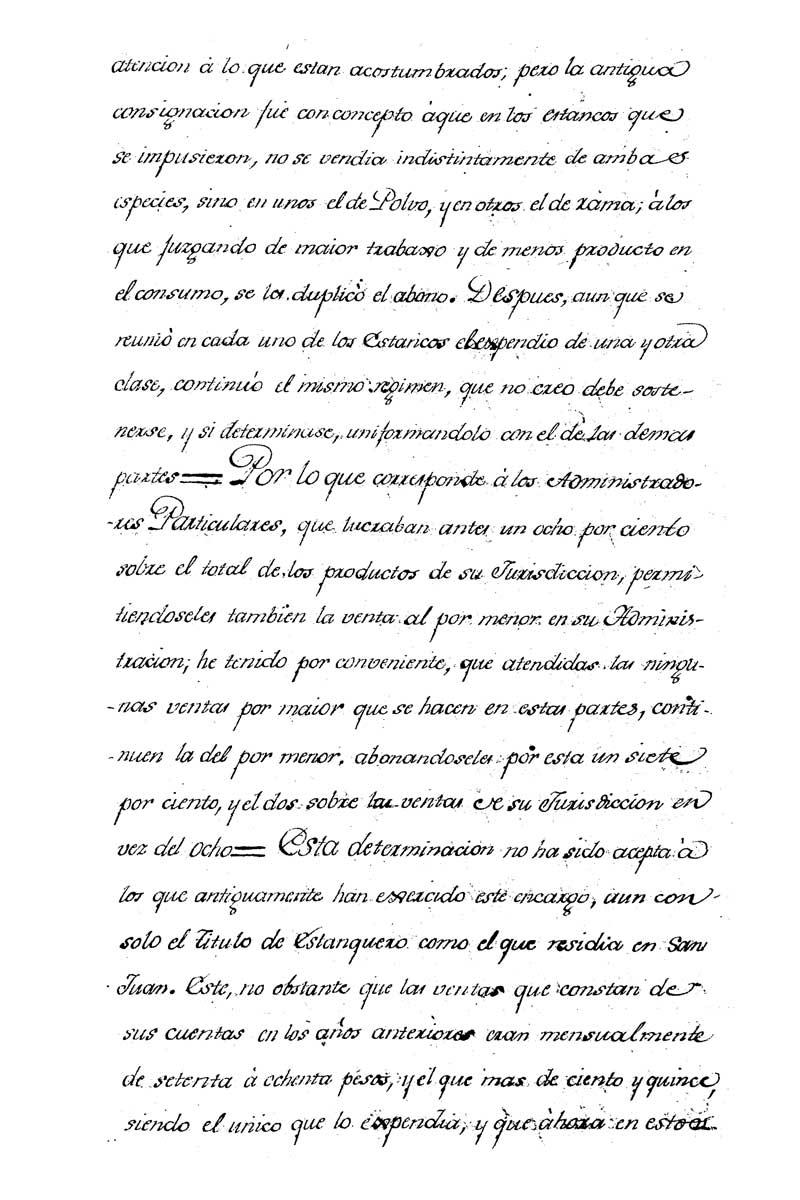 atencion à lo que estan acostumbrados; pero la antigua
consignacion fué con concepto àque en los estancos que
se impusieron, no se vendia indistintamente de ambas
especies, sino en unos el de Polvo, y en otros el de rama; à los
que juzgando de maior travaxo y de menos producto en
el consumo, se les duplicò el abono. Despues, aun que se
reuniò en cada uno de los Estancos el expendio de una y otra
clase, continuó el mismo regimen, que no creo debe soste-
nerse, y si determinase, uniformandolo con el de las demas
partes= Por lo que corresponde à los Administrado-
-res Particulares, que lucraban antes un ocho por ciento
sobre el total de los productos de su Jurisdiccion, permi-
tiendoseles tambien la venta al por menor en su Adminis-
tracion; he tenido por conveniente, que atendidas las ningu-
-nas ventas por maior que se hacen en estas partes, conti-
-nuen la del por menor, abonandoseles por esta un siete
por ciento, y el dos sobre las ventas de su Jurisdiccion en
vez del ocho= Esta determinacion no ha sido acepta à
los que antiguamente han exercido este encargo, aun con
solo el Titulo de Estanquero como el que residia en San
Juan. Este, no obstante que las ventas que constan de
sus cuentas en los años anteriores eran mensualmente
de setenta à ochenta pesos, y el que mas de ciento y quince,
siendo el unico que lo expendia, y que àhora en estos